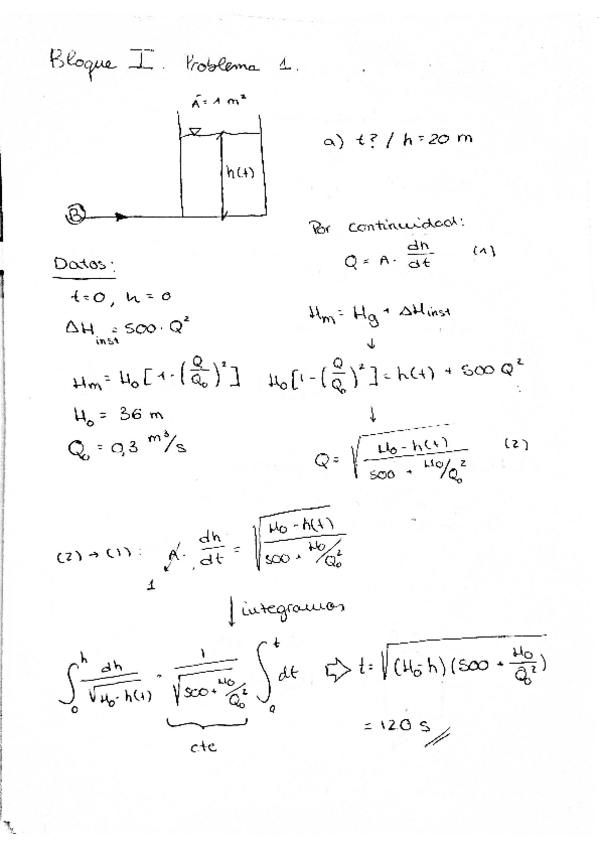 Bloque I. Problema 1.
A = 1 m²
a) t? / h = 20 m
h(t)
B
Por continuidad:
Q = A · dh/dt (1)
Datos:
t=0, h=0
ΔH inst = 500 · Q²
Hm = Hg + ΔH inst
↓
Hm = H₀ [1 - (Q/Q₀)²]
H₀ [1 - (Q/Q₀)²] = h(t) + 500 Q²
↓
H₀ = 36 m
Q₀ = 0,3 m³/s
Q = √((H₀ - h(t)) / (500 + H₀/Q₀²)) (2)
(2) → (1): A · dh/dt = √((H₀ - h(t)) / (500 + H₀/Q₀²))
1
↓ integramos
∫₀ʰ dh/√(H₀ - h(t)) = 1/√(500 + H₀/Q₀²) ∫₀ᵗ dt ⇒ t = √((H₀ - h)(500 + H₀/Q₀²))
cte
= 120 s